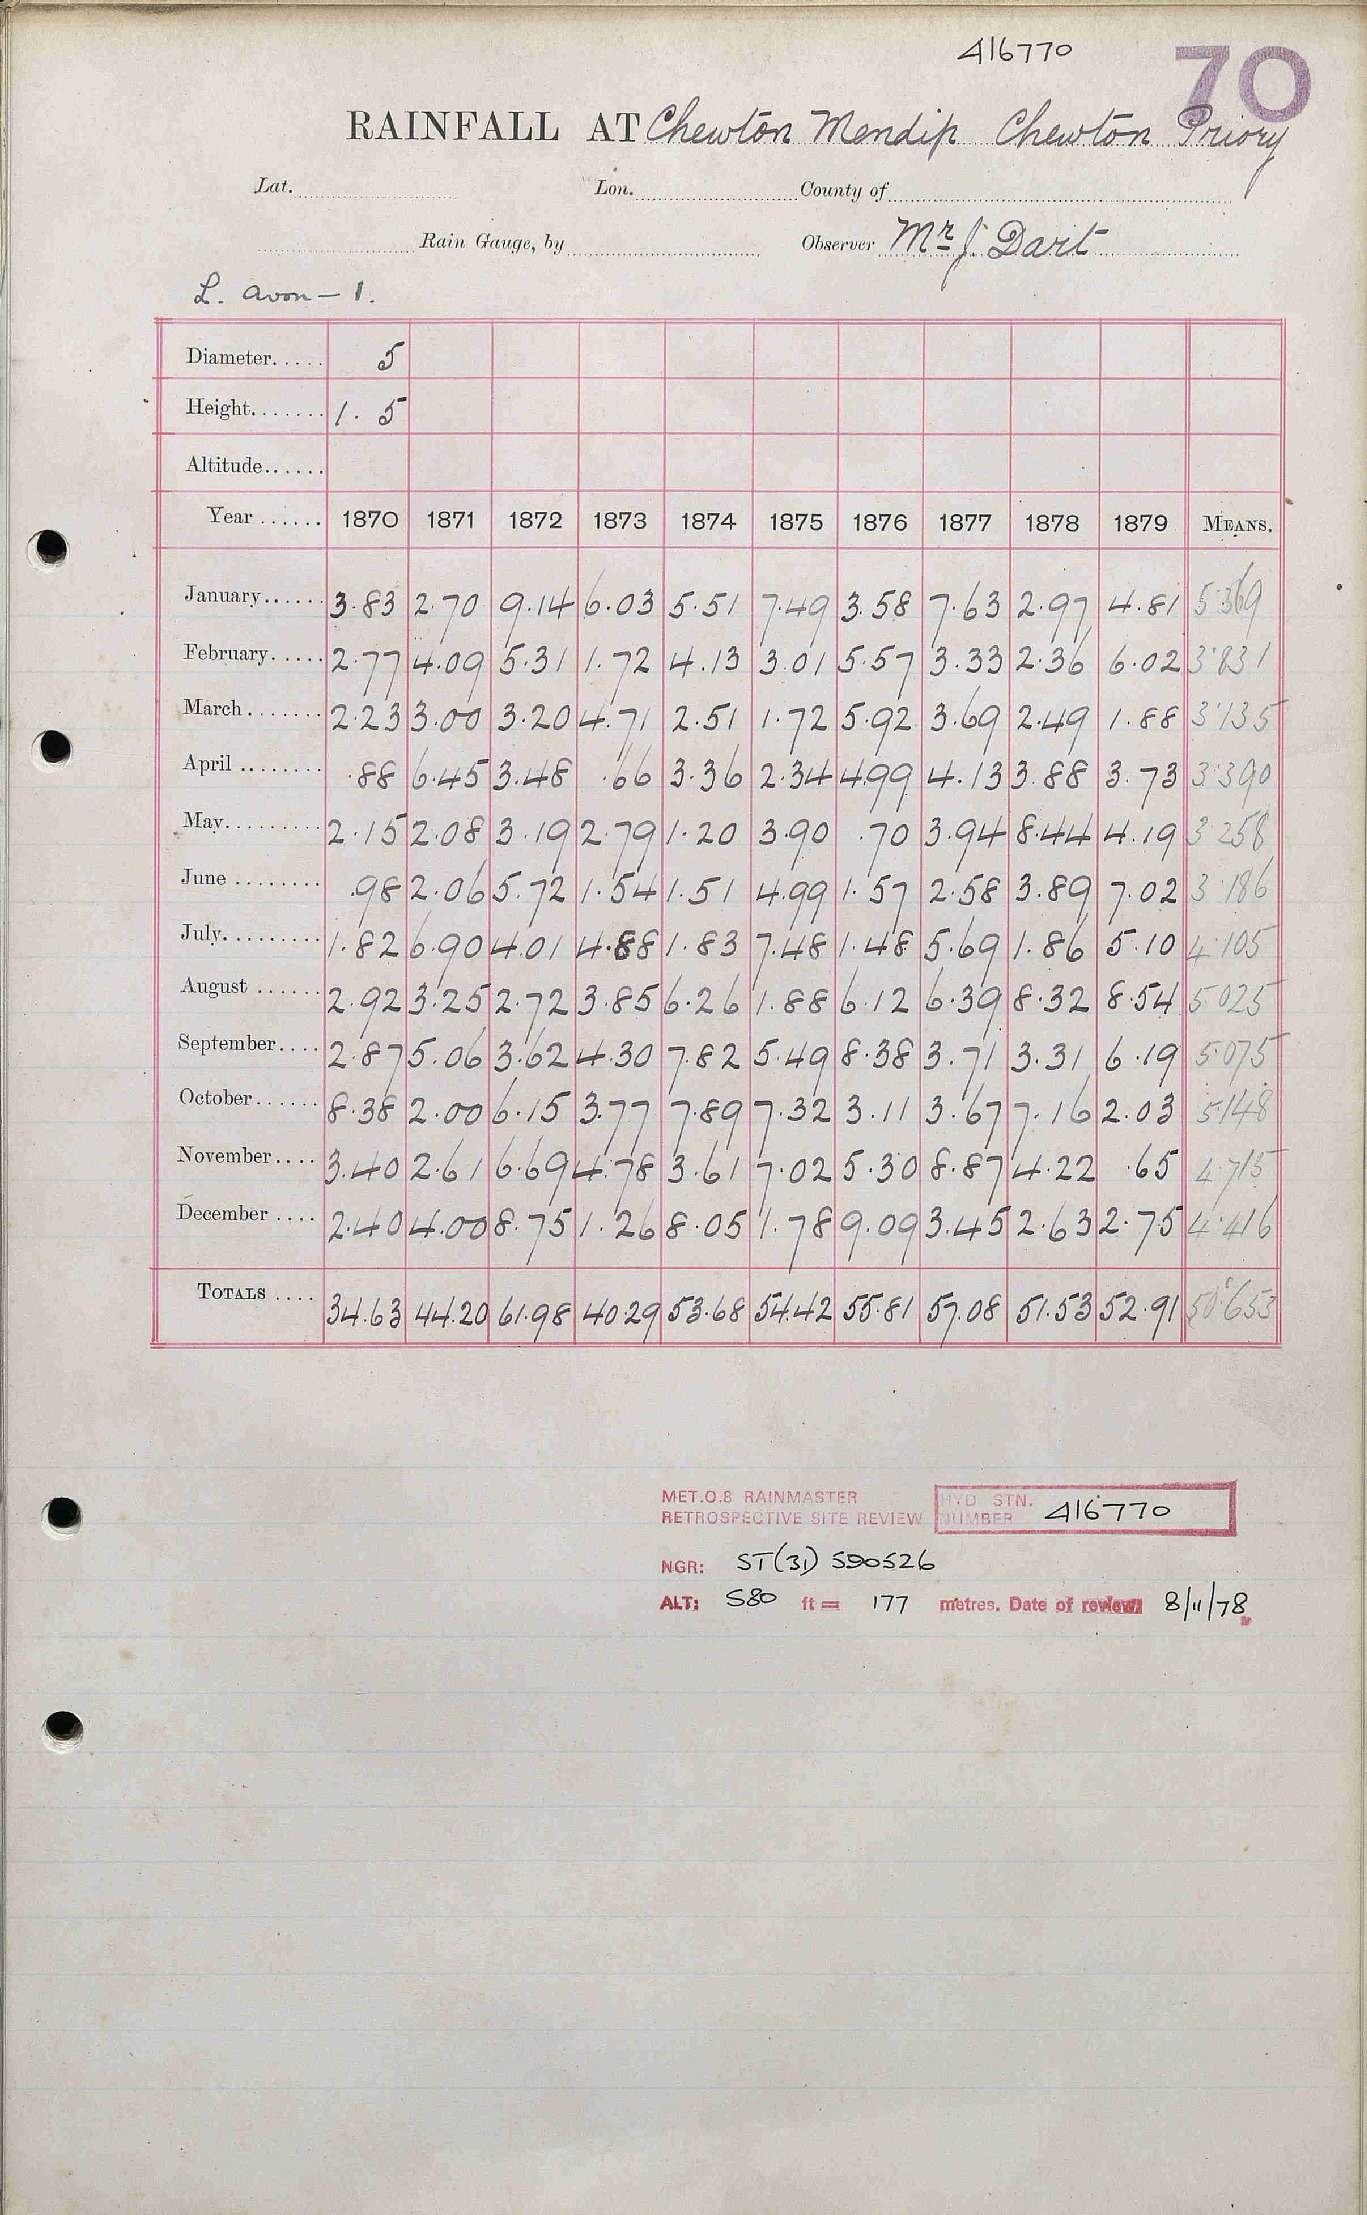 416770
70
RAINFALL AT Chewton Mendip Chewton Priory
Lat. Lon. County of
Rain Gauge, by Observer Mr J. Dart
L. Avon — 1.
Diameter..... 5
Height....... 1. 5
Altitude......
Year ...... 1870 1871 1872 1873 1874 1875 1876 1877 1878 1879 MEANS.
January...... 3.83 2.70 9.14 6.03 5.51 7.49 3.58 7.63 2.97 4.81 5.369
February..... 2.77 4.09 5.31 1.72 4.13 3.01 5.57 3.33 2.36 6.02 3.831
March ....... 2.23 3.00 3.20 4.71 2.51 1.72 5.92 3.69 2.49 1.88 3.135
April ........ .88 6.45 3.48 .66 3.36 2.34 4.99 4.13 3.88 3.73 3.390
May......... 2.15 2.08 3.19 2.79 1.20 3.90 .70 3.94 8.44 4.19 3.258
June ........ .98 2.06 5.72 1.54 1.51 4.99 1.57 2.58 3.89 7.02 3.186
July......... 1.82 6.90 4.01 4.88 1.83 7.48 1.48 5.69 1.86 5.10 4.105
August ...... 2.92 3.25 2.72 3.85 6.26 1.88 6.12 6.39 8.32 8.54 5.025
September.... 2.87 5.06 3.62 4.30 7.82 5.49 8.38 3.71 3.31 6.19 5.075
October...... 8.38 2.00 6.15 3.77 7.89 7.32 3.11 3.67 7.16 2.03 5.148
November.... 3.40 2.61 6.69 4.78 3.61 7.02 5.30 8.87 4.22 .65 4.715
December .... 2.40 4.00 8.75 1.26 8.05 1.78 9.09 3.45 2.63 2.75 4.416
TOTALS .... 34.63 44.20 61.98 40.29 53.68 54.42 55.81 57.08 51.53 52.91 50.653
MET.O.8 RAINMASTER HYD STN.
RETROSPECTIVE SITE REVIEW NUMBER 416770
NGR: ST(31) 590526
ALT: 580 ft = 177 metres. Date of review: 8/11/78